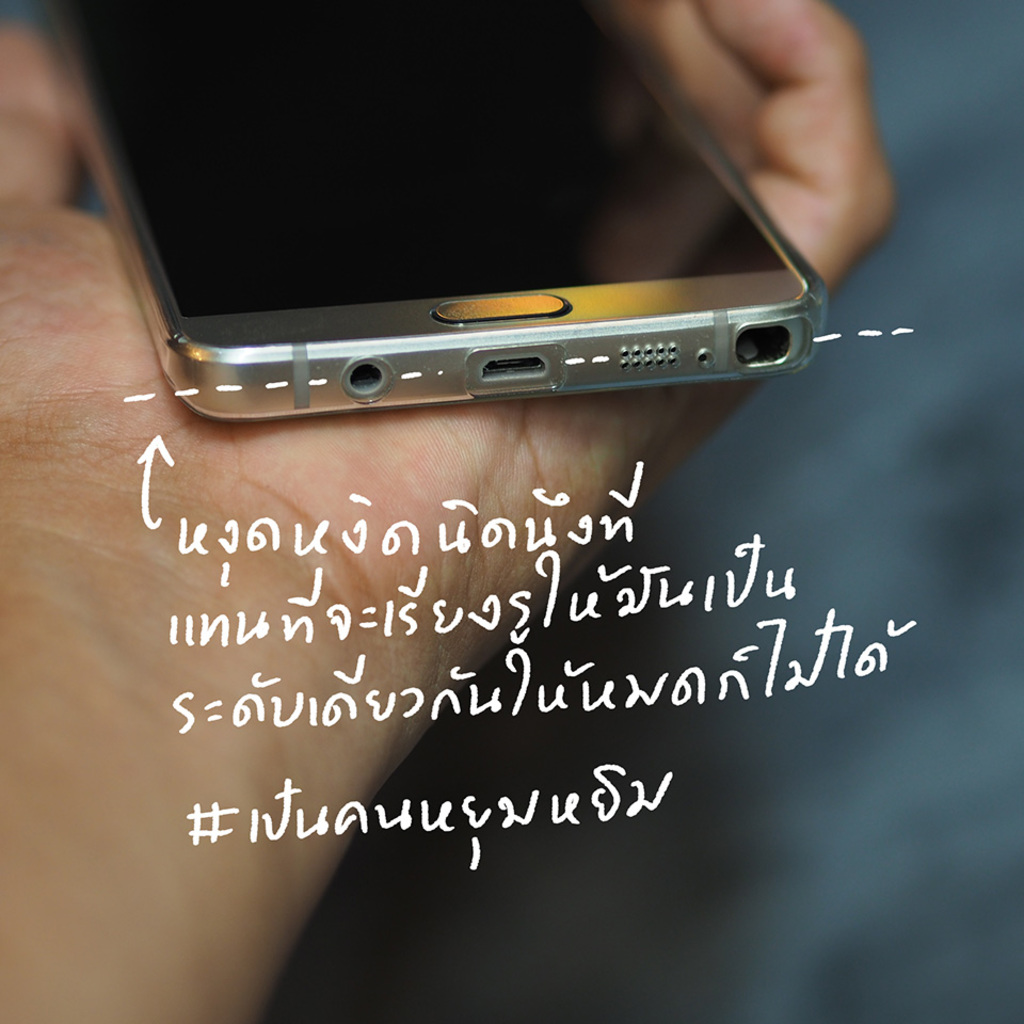 หงุดหงิดนิดนึงที่
แทนที่จะเรียงรูให้มันเป็น
ระดับเดียวกันให้หมดก็ไม่ได้
#เป็นคนหยุมหยิม